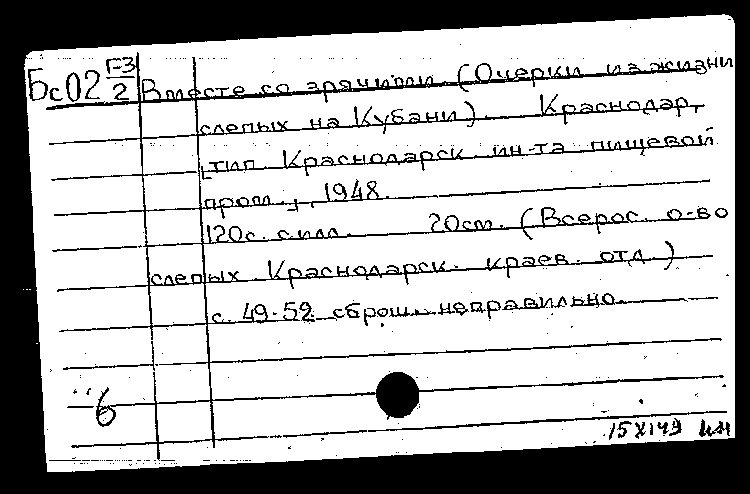 Бс02 Г-3/2 Вместе со зрячими. (Очерки из жизни
слепых на Кубани). Краснодар,
тип. Краснодарск. ин-та пищевой
пром., 1948.
120с. с илл. 20см. (Всерос. о-во
слепых. Краснодарск. краев. отд.)
с. 49-52 сброш. неправильно.
6
15 X 149